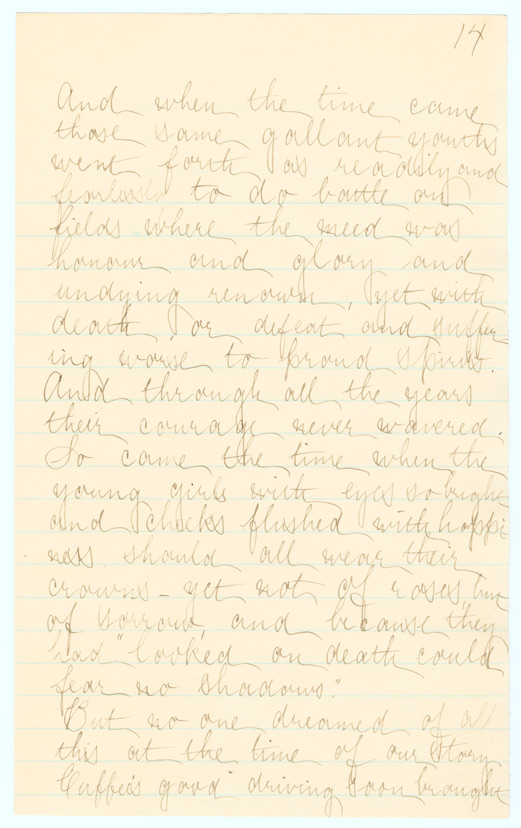 14
And when the time came
those same gallant youths
went forth as readily and
fearlessly to do battle on
fields where the meed was
honour and glory and
undying renown, yet with
death, or defeat and suffer
ing worse to proud spirits.
And through all the years
their courage never wavered.
So came the time when the
young girls with eyes so bright
and cheeks flushed with happi
ness should all wear their
crowns - yet not of roses, but
of sorrow, and because they
had "looked on death could
fear no shadows."
But no one dreamed of all
this at the time of our story
Cuffee's good driving soon brought